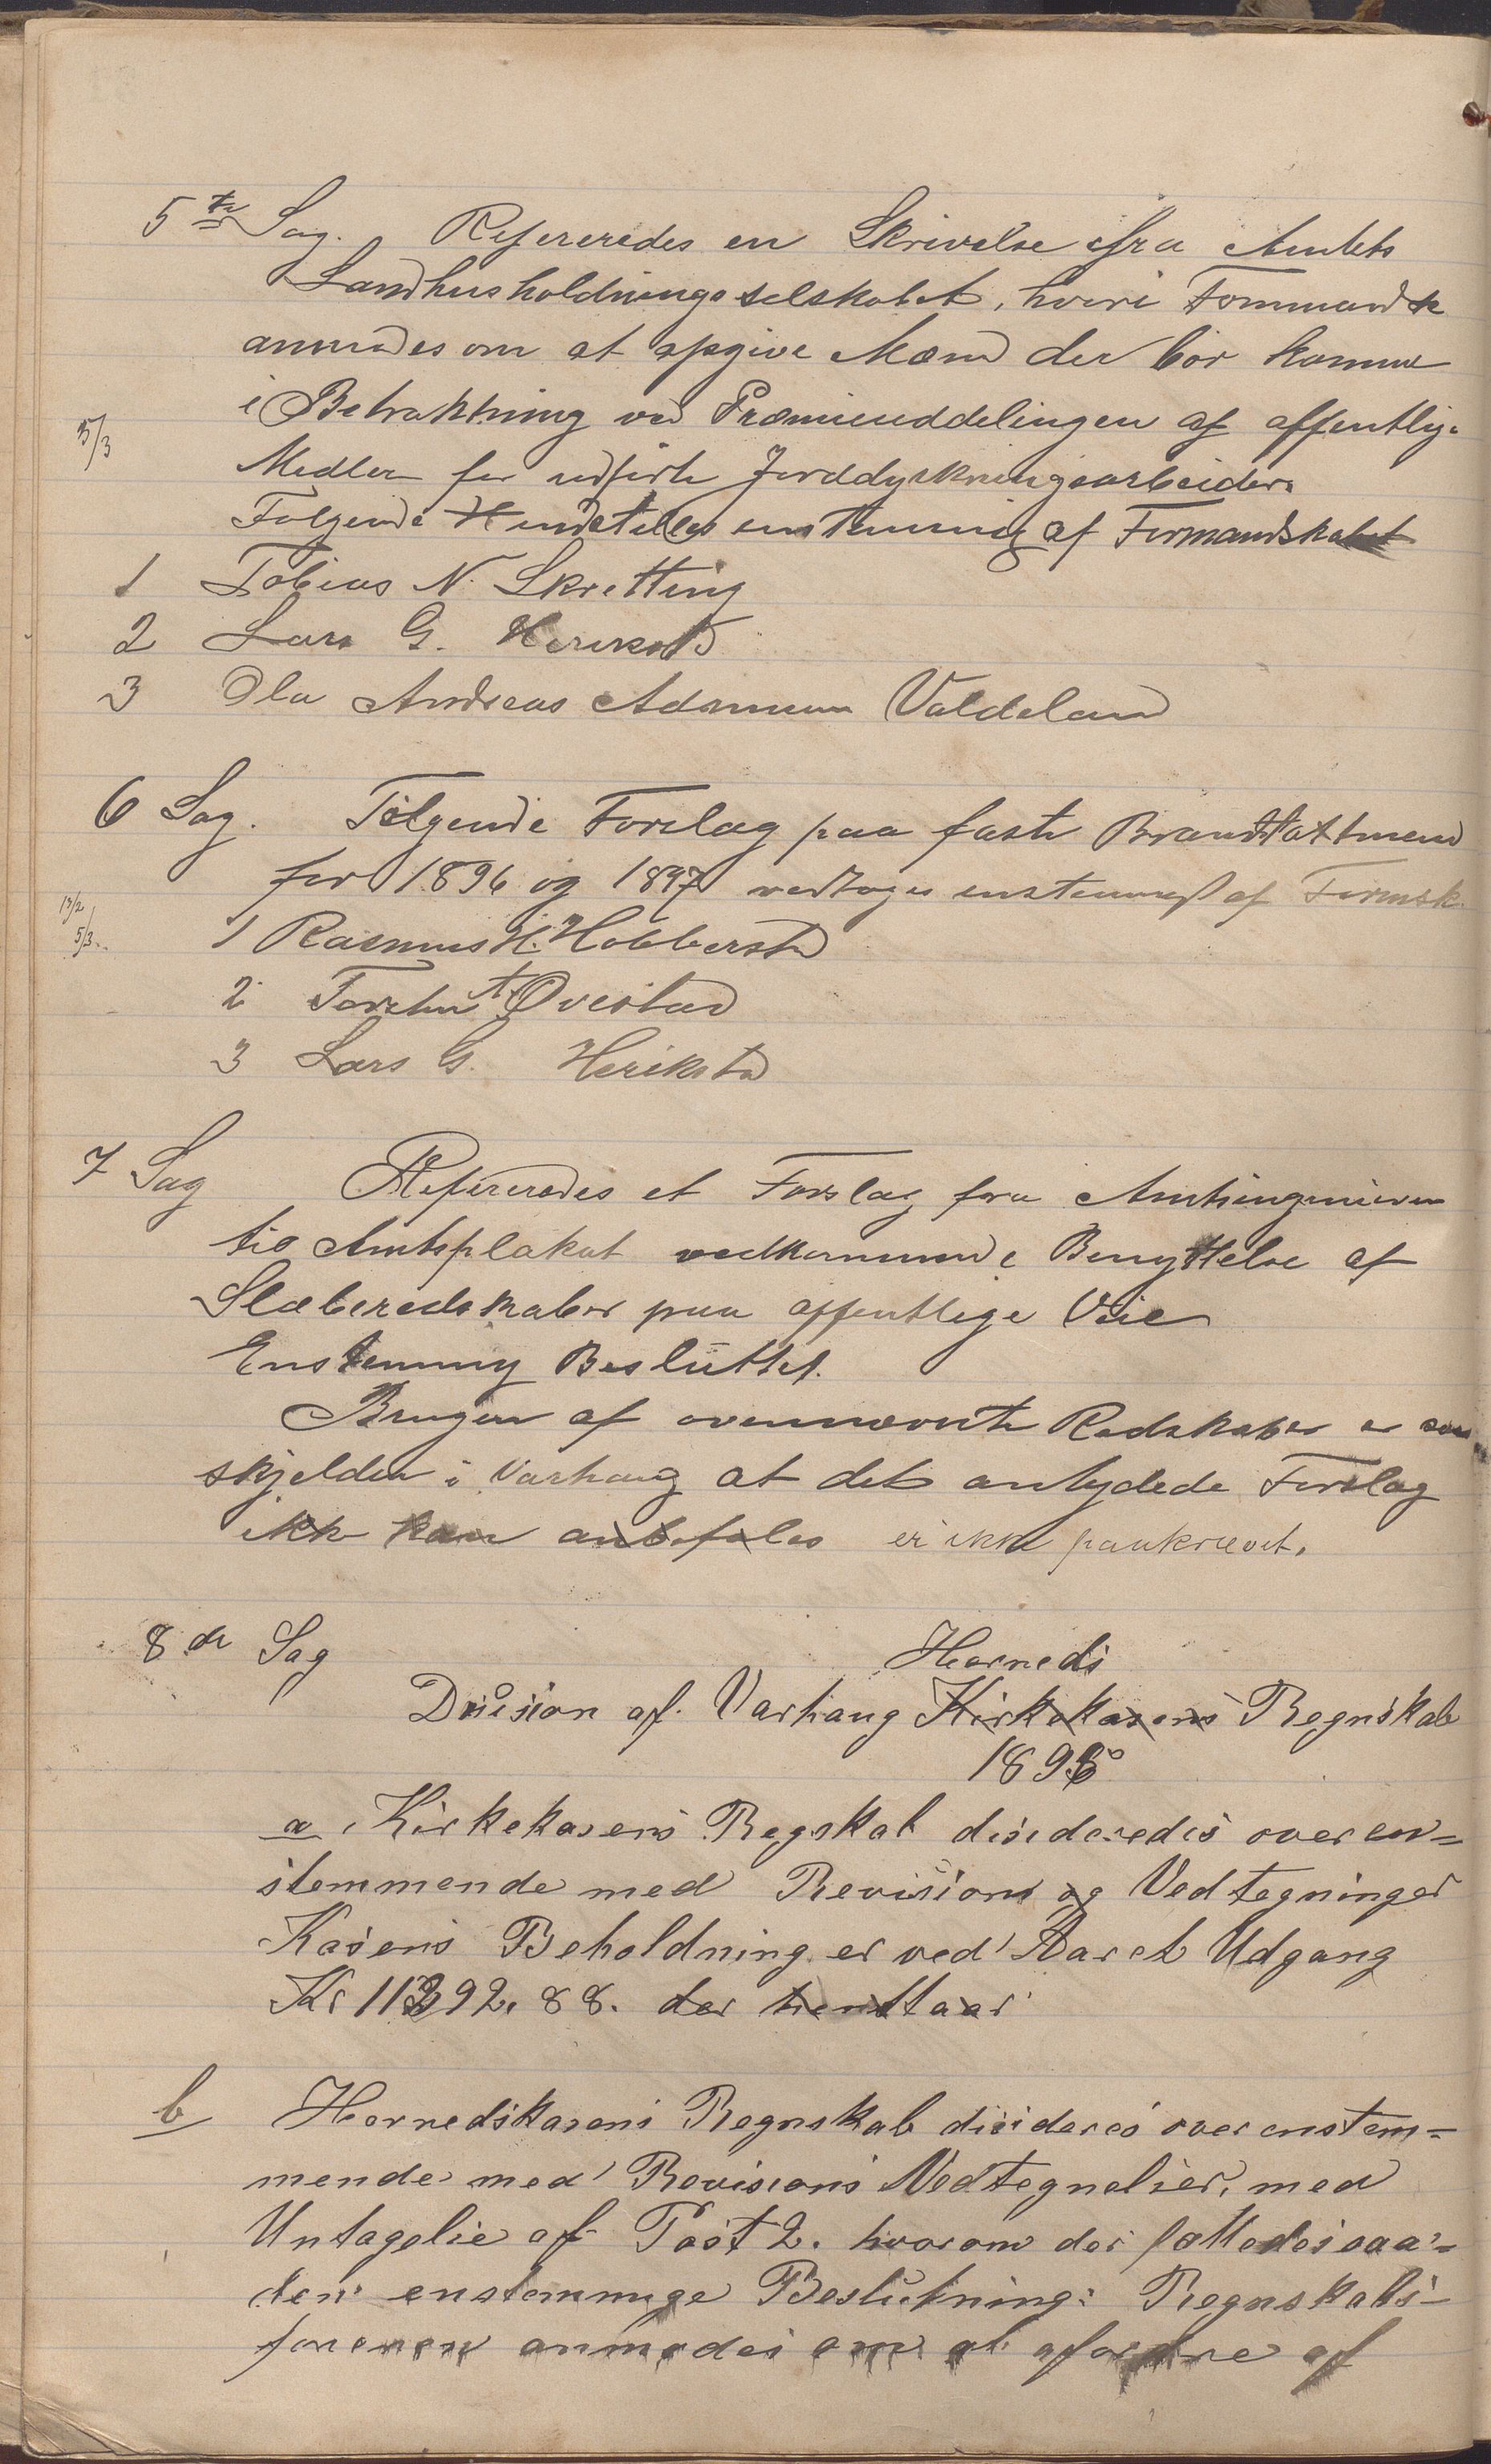 5te Sag. Refereredes en Skrivelse fra Amtets
Landhusholdningsselskabet, hvori Formandsk
anmodes om at opgive Mænd der bör komme
i Betraktning ved Præmieuddelingen af offentlige
5/3
Medler for udförte Jorddyrkningsarbeider.
Følgende Indstilles enstemmig af Formandskabet
1 Tobias N. Skretting
2 Lars G. Herikstd
3 Ola Andreas Adsmun Valdeland
6 Sag. Følgende Forslag paa faste Brandtatmend
for 1896 og 1897 vedtoges enstemmigt af Formsk.
13/2
5/3
1 Rasmus H. Hobberstd
2 Torsten T. Qvestad
3 Lars G. Herikstd
7 Sag Refereredes et Forslag fra Amtsingeniøren
til Amtsplakat vedkommende Benyttelse af
Slæberedskaber paa offentlige Veie
Enstemmig Besluttet.
Brugen af ovennævnte Redskaber er saa
skjelden i Varhaug at det antydede Forslag
ikke kan anbefales er ikke paakrævet.
8de Sag
Herneds
Desision af. Varhaug Kirkekasens Regnskab
1895
a. Kirkekasens Regskab desideredes overen=
stemmende med Revisions og Vedtegninger
Kasens Beholdning er ved Aarets Udgang
Kr 11392.88. der henstaar
b Hernedskasens Regnskab desideres overenstem=
mende med Revisions Nedtegnelser, med
Untagelse af Post 2. hvorom der fattedes saa=
den enstemmige Beslutning: Regnskabs-
foreren anmodes om at afordre af